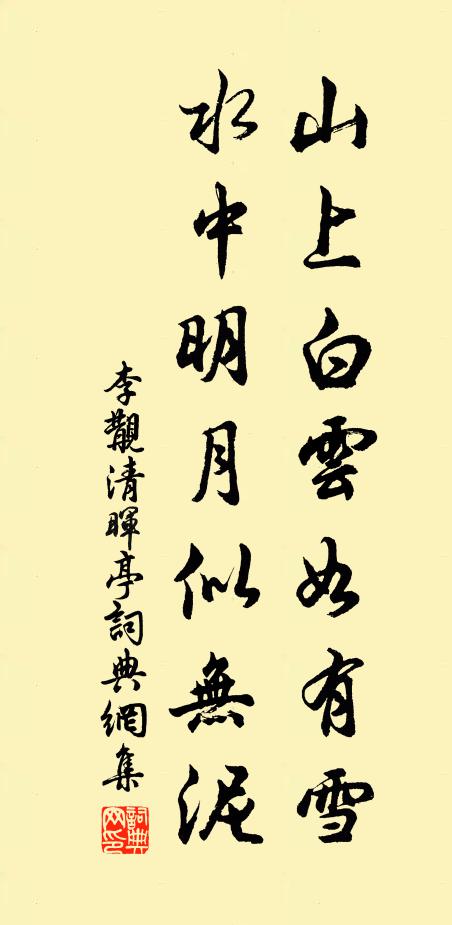 山上白雲如有雪
水中明月似無泥
李觀清暉亭詞典網集
詞典网印